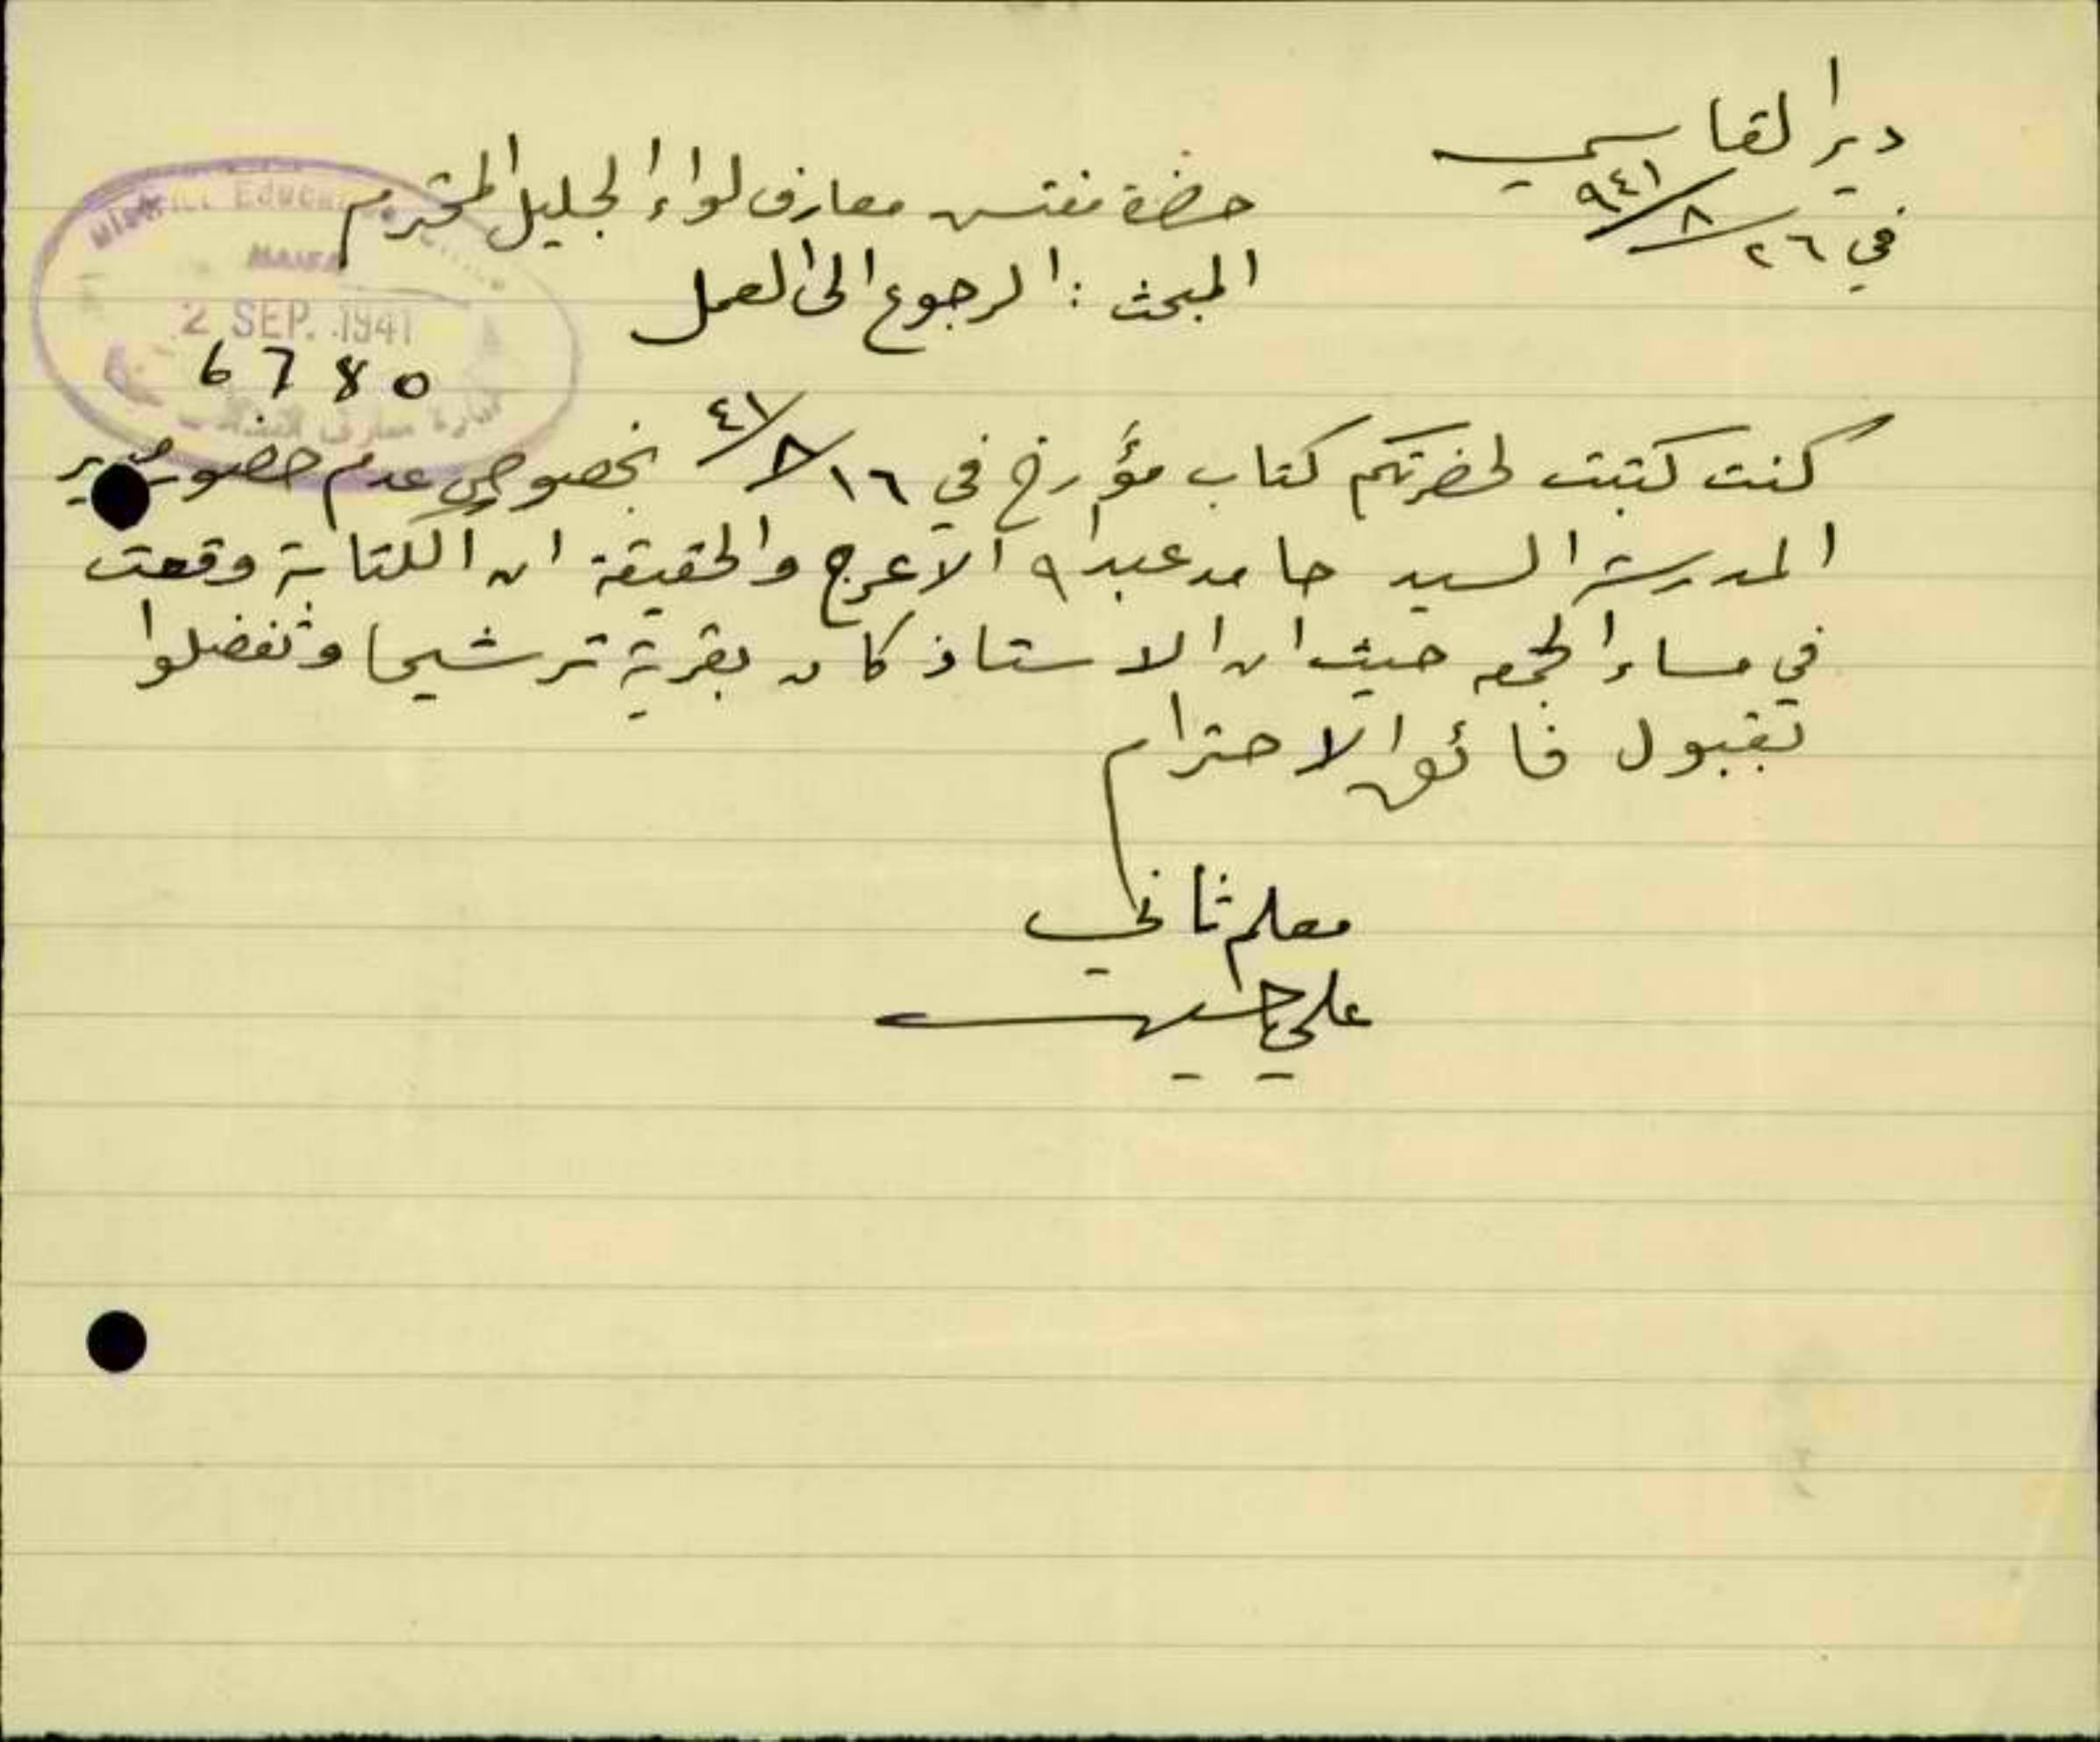 دير القاسي
في ٢٦/٨/٩٤١
حضرة مفتش معارف لواء الجليل المحترم
المبحث : الرجوع الى العمل
2 SEP. 1941
6780
كنت كتبت لحضرتكم كتاب مؤرخ في ١٦/٨/٤١ بخصوص عدم حضور مدير
المدرسة السيد حامد عبدالله الاعرج والحقيقة ان الكتابة وقعت
في مساء الجمعه حيث ان الاستاذ كان بقرية ترشيحا وتفضلوا
بقبول فائق الاحترام
معلم ثاني
علي